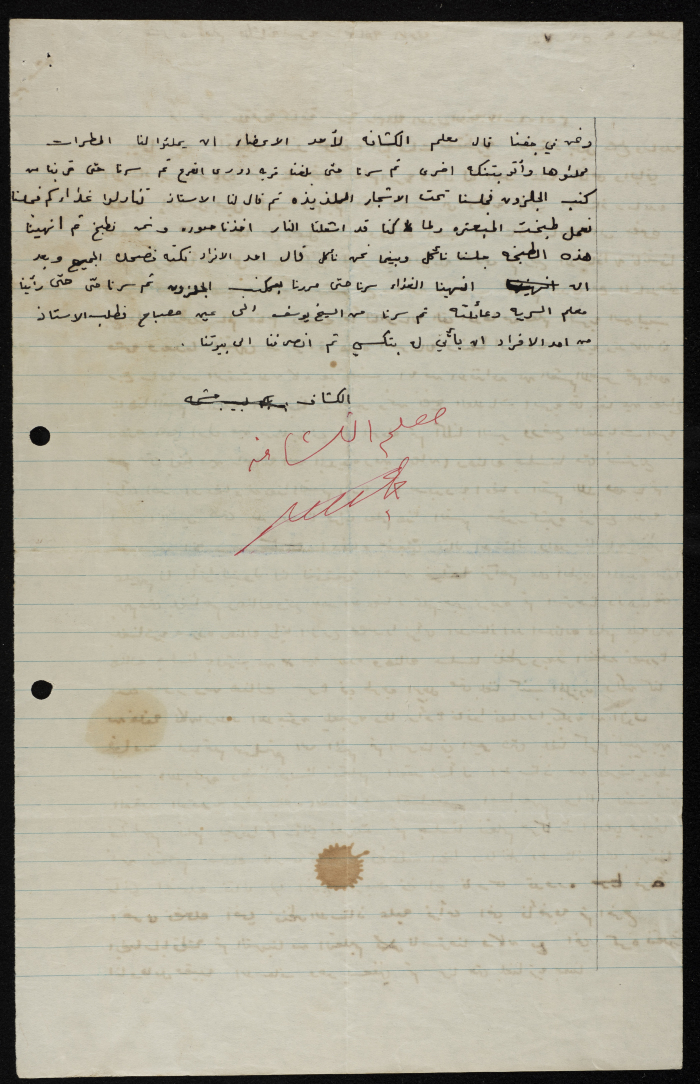 ونحن في جفنا قال معلم الكشافة لأحد الاعضاء ان يملئوا لنا المطرات
فملئوها وأتو بتنكة اخرى ثم سرنا حتى بلغنا قرية دورى القرع ثم سرنا حتى قربنا من
كنب الجلزون فجلسنا تحت الاشجار الملذيذه ثم قال لنا الاستاذ تناولوا غذاءكم فجلسنا
نعمل طبخت المبعتره ولما كنا قد اشعلنا النار اخذنا صوره ونحن نطبخ ثم انهينا
هذه الطبخة جلسنا نأكل وبينما نحن نأكل قال احد الافراد نكتة فضحك الجميع وبعد
ان انهينا الغذاء سرنا حتى مررنا بكنب الجلزون ثم سرنا حتى حتى رأينا
معلم السرية وعائلته ثم سرنا من الشيخ يوسف الى عين مصباح فطلب الاستاذ
من احد الافراد ان يأتي له بتكسي ثم انصرفنا الى بيوتنا .
الكشاف
معلم الكشافة